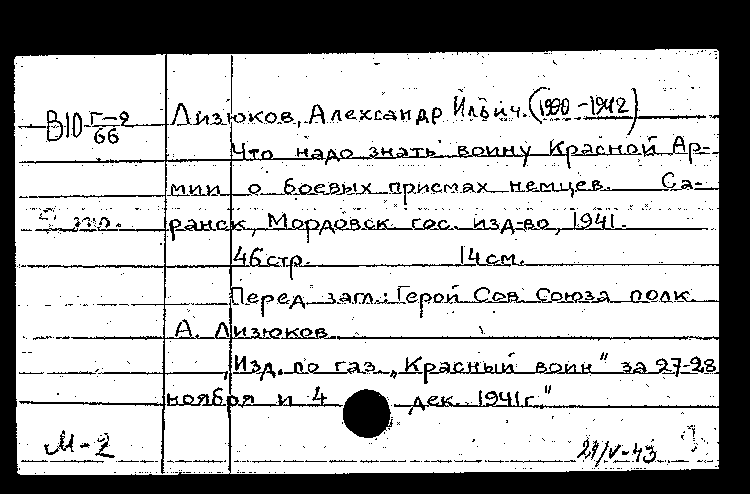 В10 Г-2/66
Лизюков, Александр Ильич. (1900-1942)
Что надо знать воину Красной Ар-
мии о боевых приемах немцев. Са-
ранск, Мордовск. гос. изд-во, 1941.
46 стр. 14 см.
Перед загл.: Герой Сов. Союза полк.
А. Лизюков.
"Изд. по газ. "Красный воин" за 27-28
ноября и 4 дек. 1941г."
М-2
21/V-43